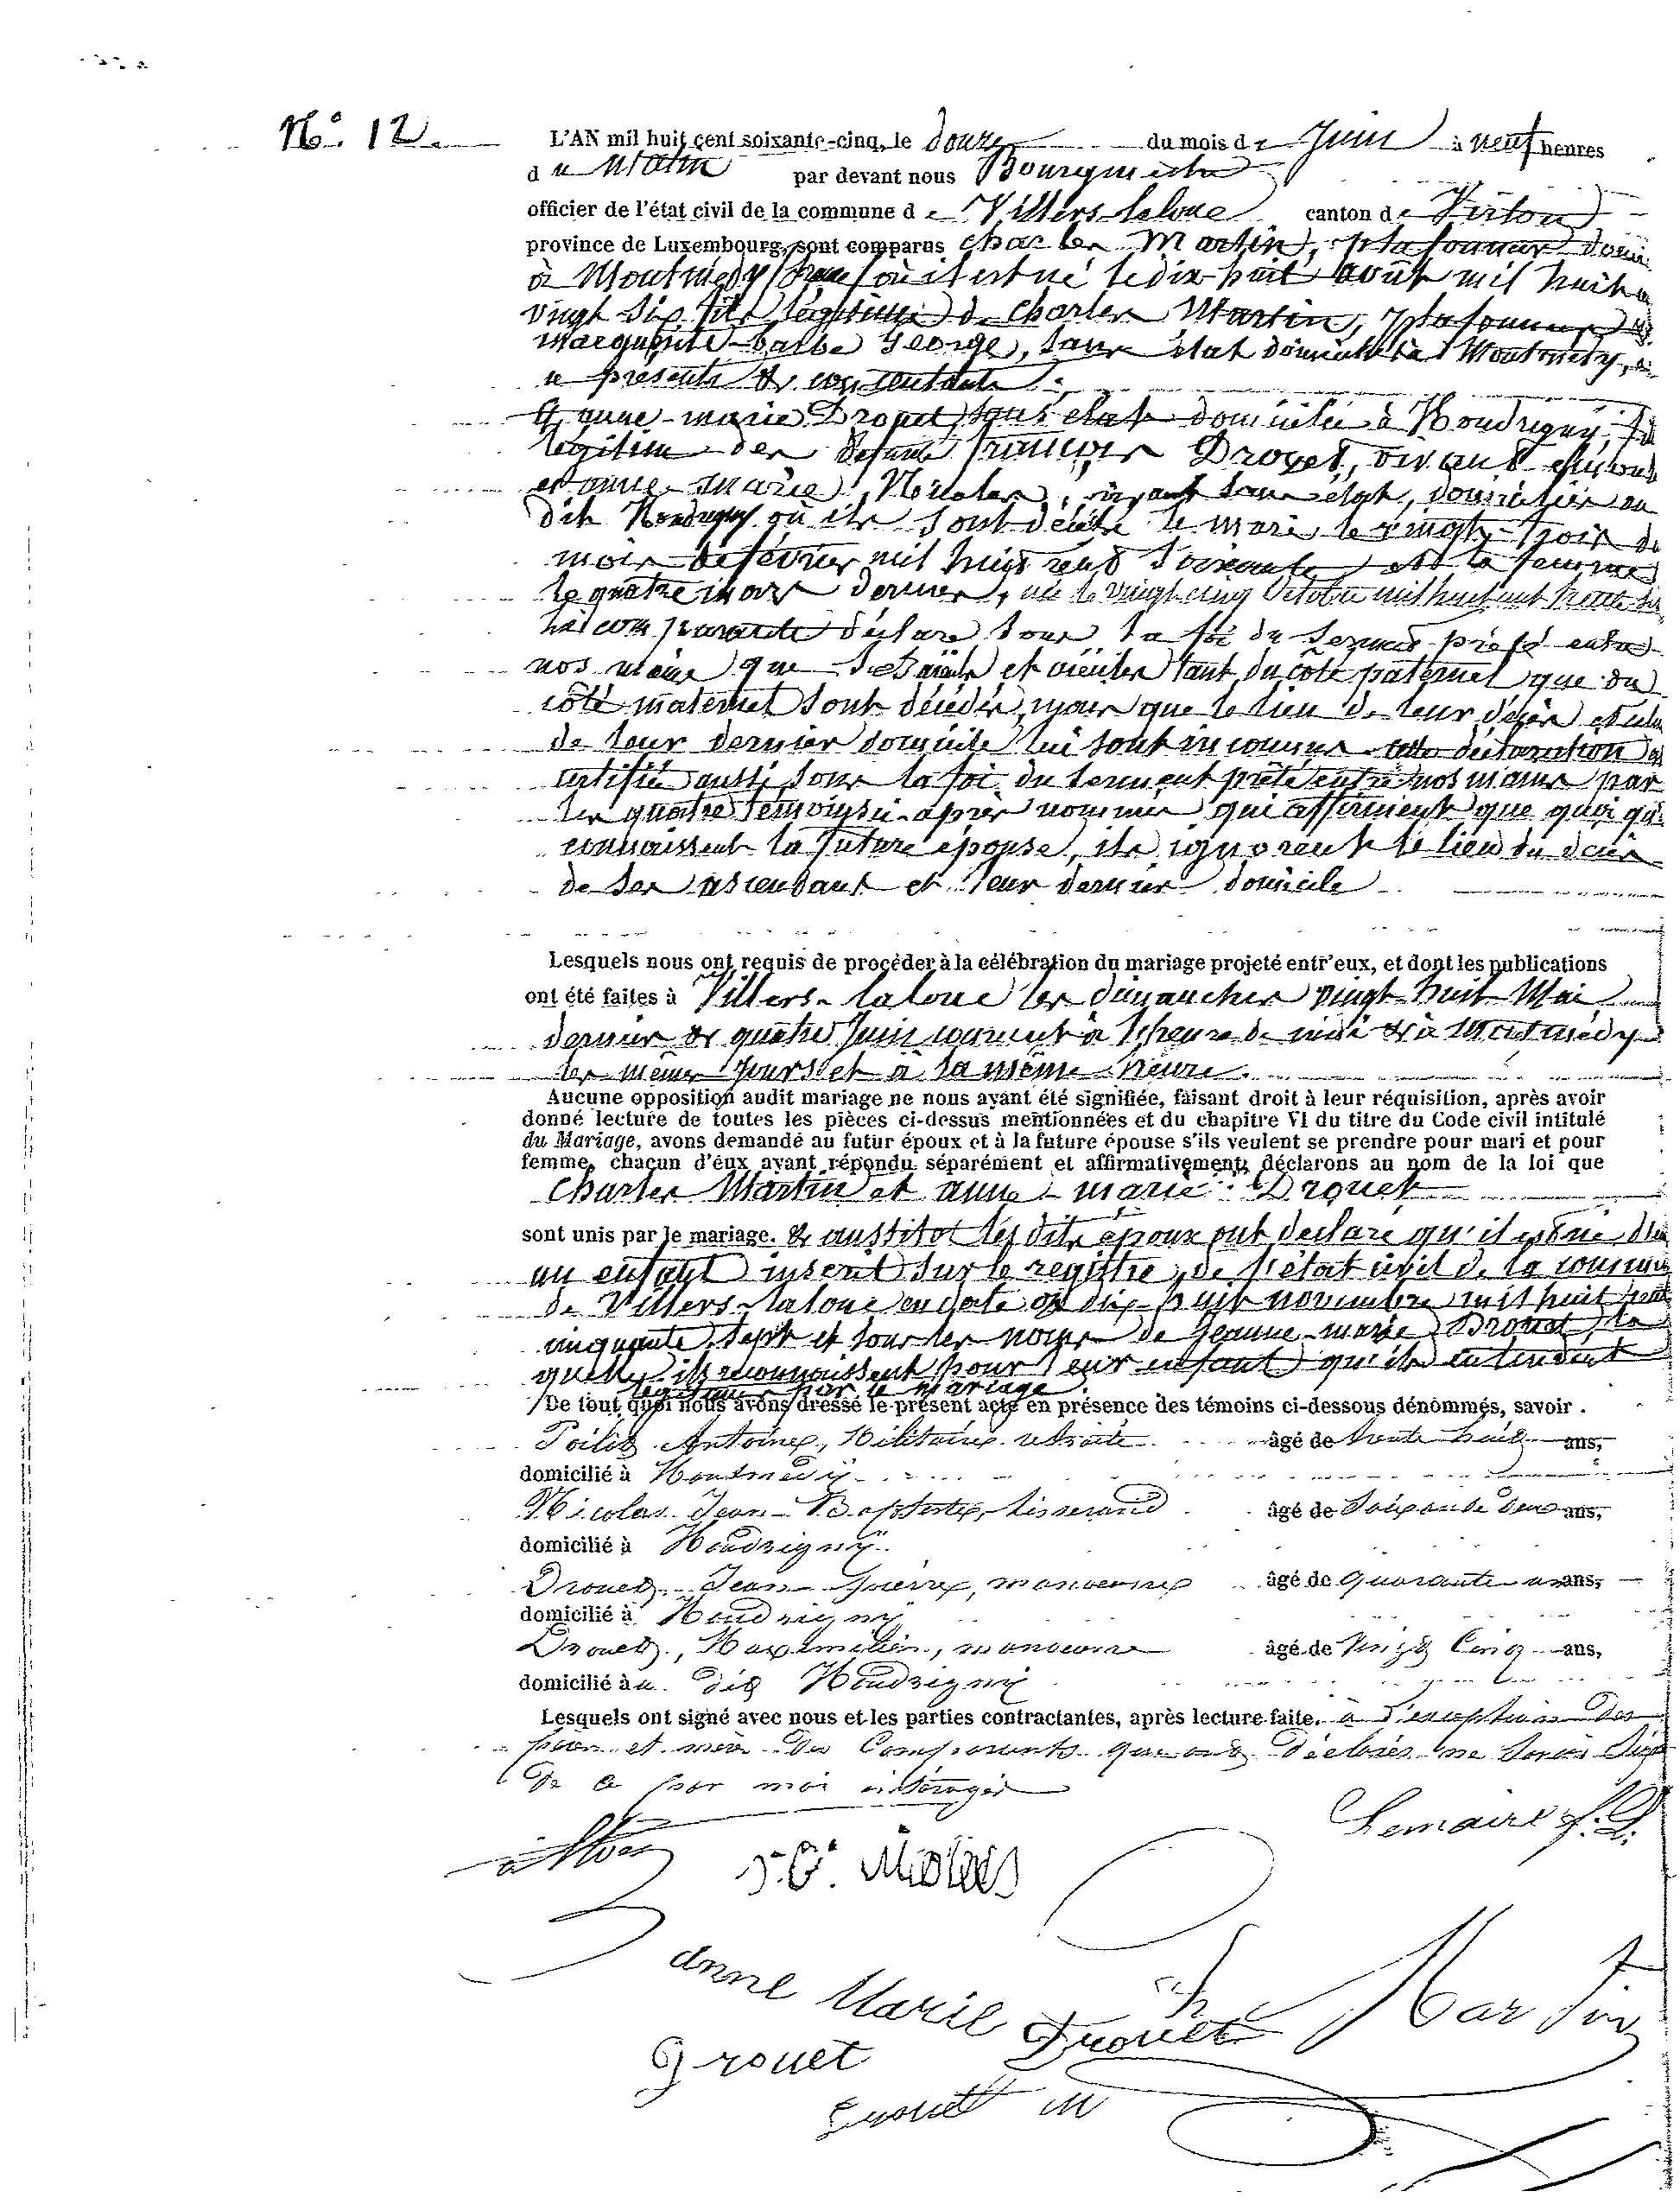 N° 12.
L'AN mil huit cent soixante-cinq, le douze du mois de Juin à neuf heures
du Matin par devant nous Bourgmestre
officier de l'état civil de la commune de Villers-laloue canton de Virton
province de Luxembourg, sont comparus Charles Martin, plafonneur domi
à Montmédy où il est né le dix-huit août mil huit
vingt six fils légitime de Charles Martin, plafonneur
Marguerite-barbe George, sans état domiciliés à Montmédy,
présents & consentants.
& anne-marie Drouet, sans état domiciliée à Houdrigny,
légitime des défunts françois Drouet, vivant
et anne-marie Nicolas, vivant sans état, domiciliés au
dit Houdrigny où ils sont décédés le mari le vingt-trois du
mois de février mil huit cent soixante et la femme
le quatre mars dernier, née le vingt-cinq Octobre mil huit cent trente
comparante déclare sous la foi du serment prêté entre
nos mains que ses aïeuls et aïeules tant du côté paternel que du
côté maternel sont décédés, mais que le lieu de leur décès et celui
de leur dernier domicile lui sont inconnus cette déclaration
certifiée aussi sous la foi du serment prêté entre nos mains par
les quatre témoins ci-après nommés qui affirment que quoi qu'
connaissent la future épouse, ils ignorent le lieu du décès
de ses ascendants et leur dernier domicile
Lesquels nous ont requis de procéder à la célébration du mariage projeté entr'eux, et dont les publications
ont été faites à Villers-laloue les dimanches vingt-huit Mai
dernier & quatre Juin courant à l'heure de midi & à Montmédy
les mêmes jours et à la même heure.
Aucune opposition audit mariage ne nous ayant été signifiée, faisant droit à leur réquisition, après avoir
donné lecture de toutes les pièces ci-dessus mentionnées et du chapitre VI du titre du Code civil intitulé
du Mariage, avons demandé au futur époux et à la future épouse s'ils veulent se prendre pour mari et pour
femme, chacun d'eux ayant répondu séparément et affirmativement, déclarons au nom de la loi que
Charles Martin et anne-marie Drouet
sont unis par le mariage. & aussitôt les dits époux ont déclaré qu'il est né d'eux
un enfant inscrit sur le registre de l'état civil de la commune
de Villers-laloue en date du dix-huit novembre mil huit cent
cinquante sept et sous les noms de Jeanne-marie Drouet, la
quelle ils reconnaissent pour leur enfant qu'ils entendent
légitimer par le mariage.
De tout quoi nous avons dressé le présent acte en présence des témoins ci-dessous dénommés, savoir.
Antoine, Militaire retraité âgé de trente huit ans,
domicilié à Montmédy
Nicolas Jean-Baptiste, tisserand âgé de Soixante deux ans,
domicilié à Houdrigny
Drouet Jean-Pierre, manoeuvre âgé de quarante ans,
domicilié à Houdrigny
Drouet, Maximilien, manoeuvre âgé de Vingt Cinq ans,
domicilié au dit Houdrigny
Lesquels ont signé avec nous et les parties contractantes, après lecture faite. à l'exception des
père et mère du Comparant qui ont déclarés ne savoir
de ce par moi interrogés
Lemaire
J.B. Nicolas
Ch Martin
Anne Marie Drouet
Drouet
Drouet M